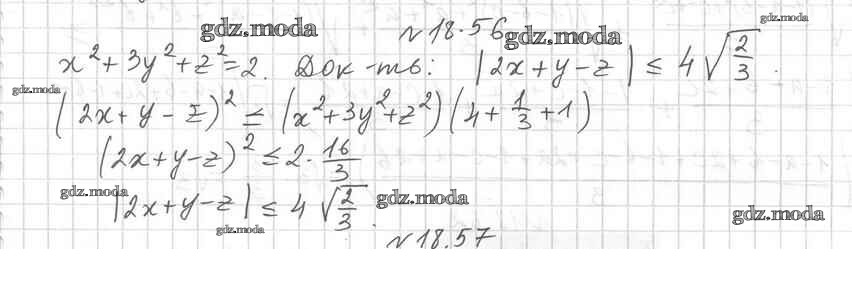 gdz.moda №18.56 gdz.moda gdz.moda
x²+3y²+z²=2. Док-ть: |2x+y-z| ≤ 4√(2/3).
gdz.moda
(2x+y-z)² ≤ (x²+3y²+z²)(4+1/3+1)
(2x+y-z)² ≤ 2·16/3
gdz.moda
|2x+y-z| ≤ 4√(2/3). gdz.moda gdz.moda
gdz.moda
№18.57